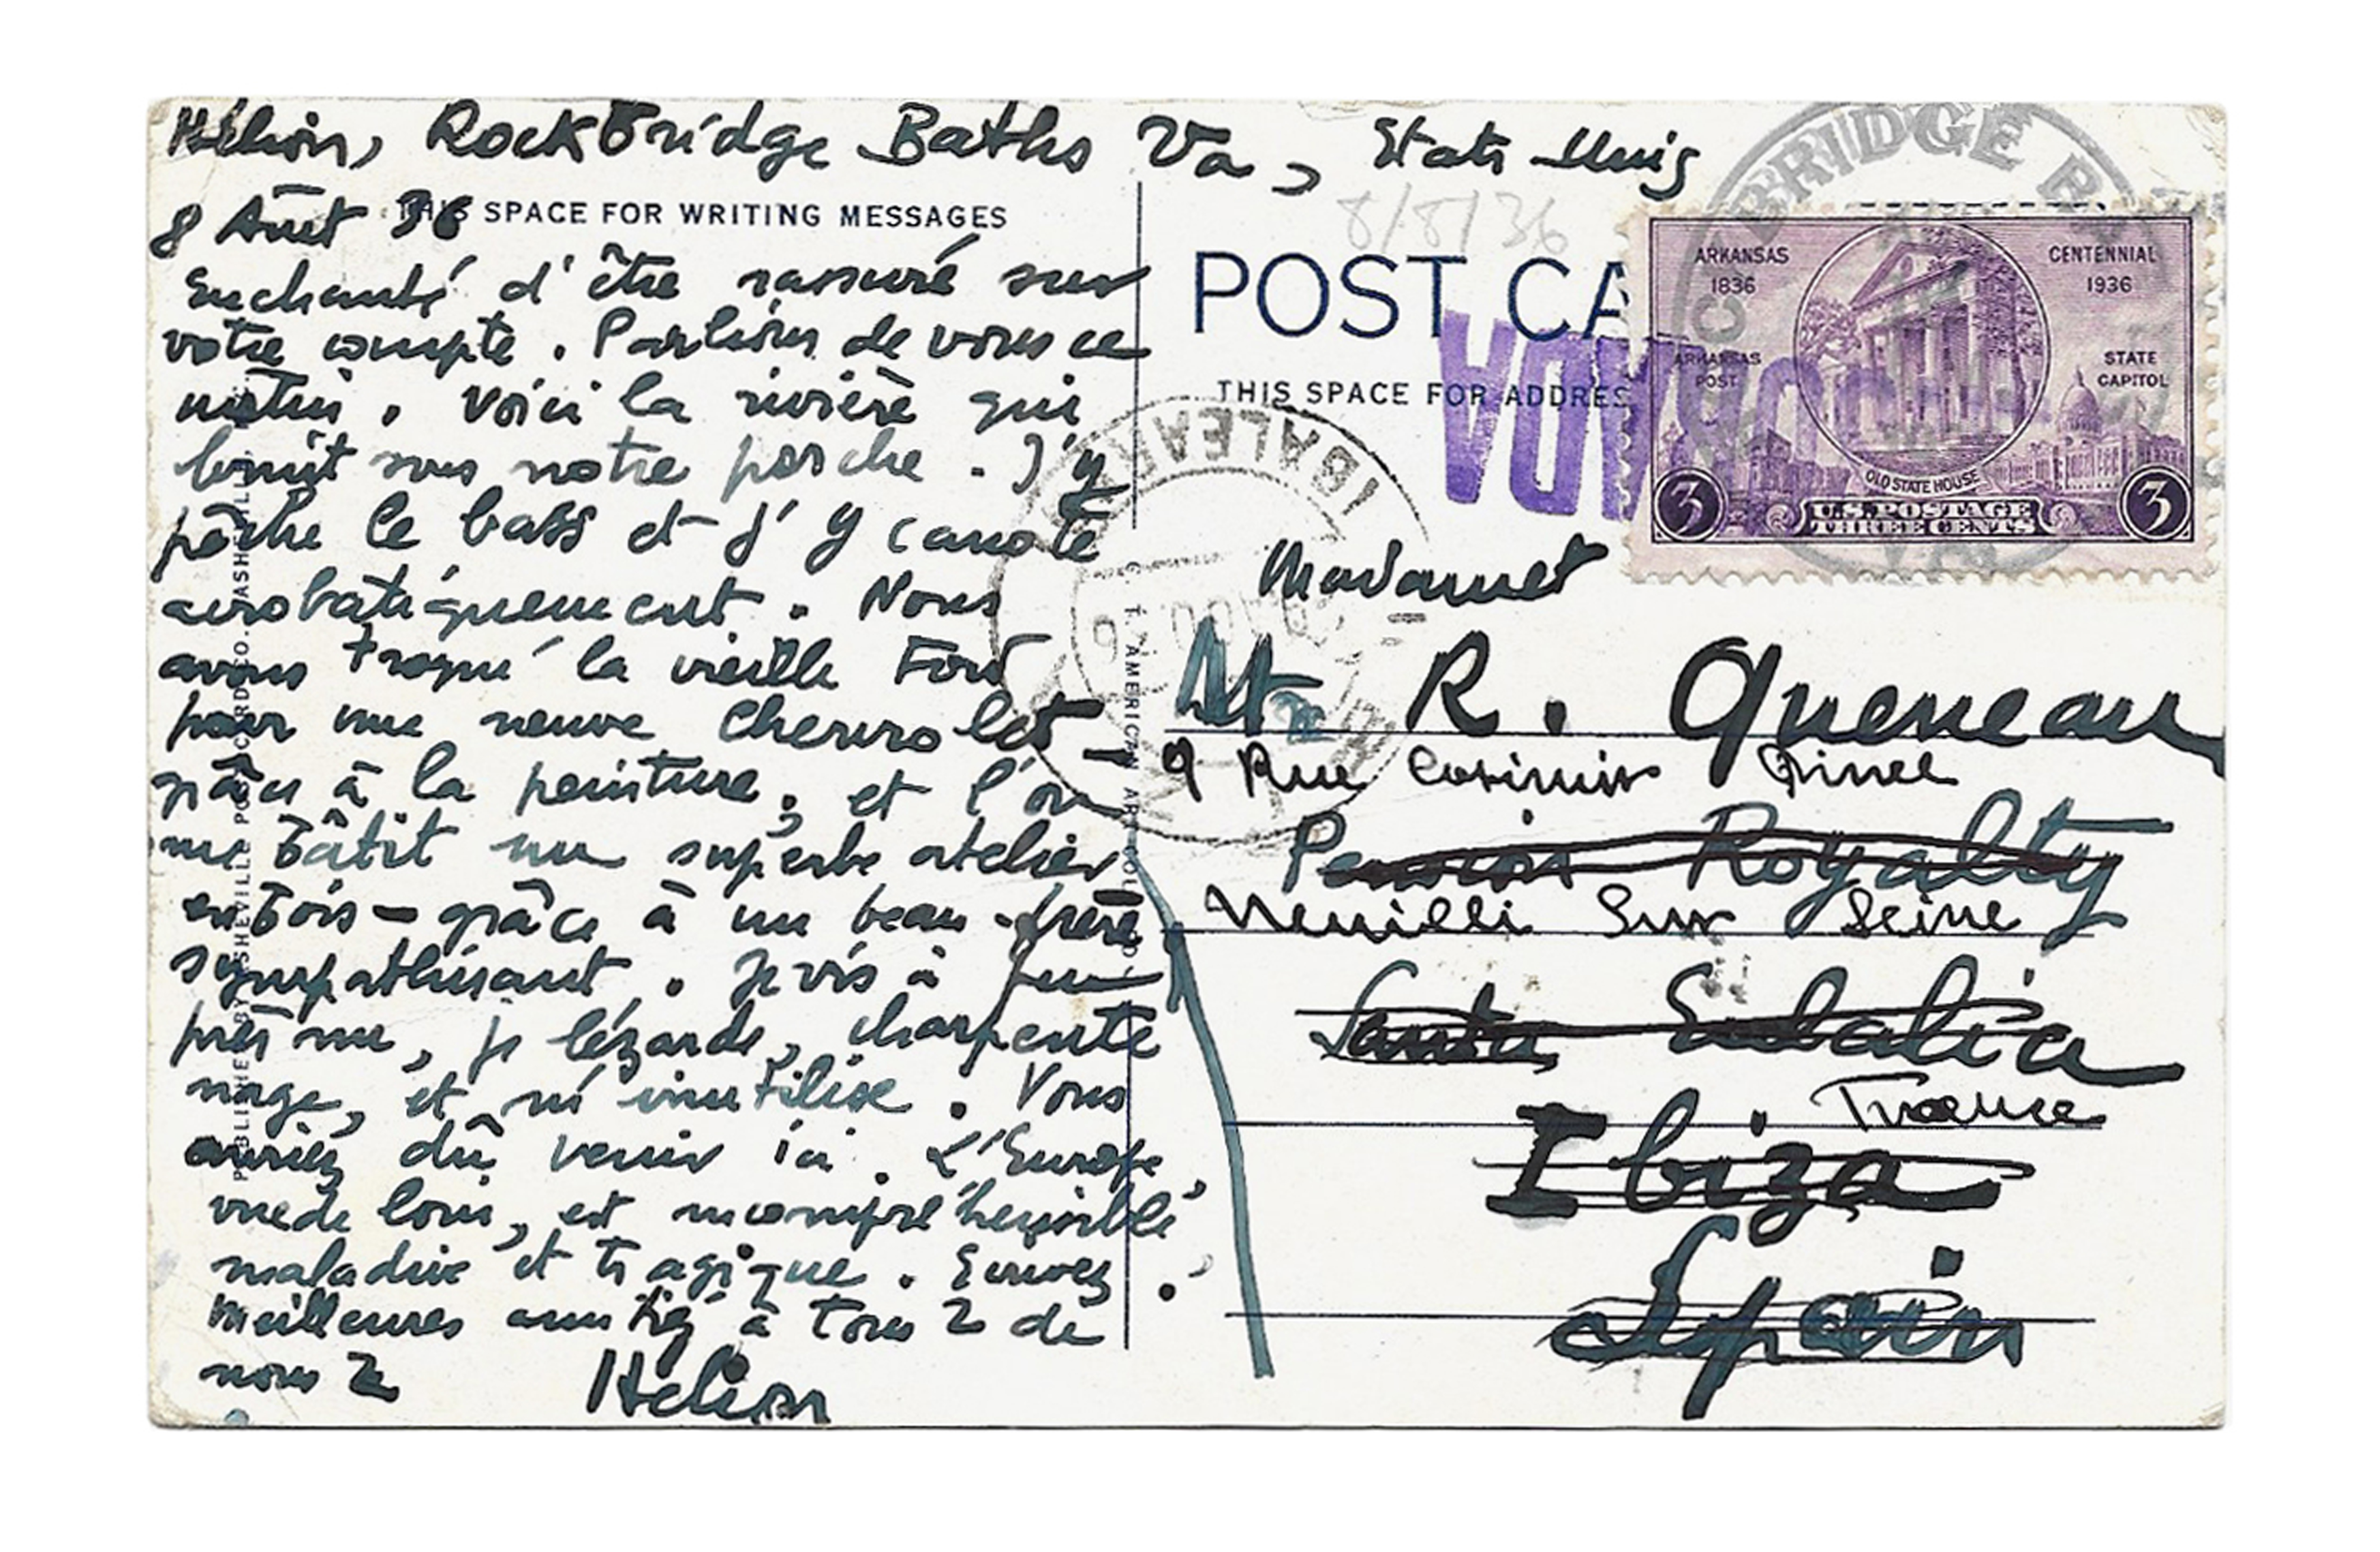 Hélion, Rockbridge Baths Va, Etats Unis
8 Août 36
THIS SPACE FOR WRITING MESSAGES
Enchanté d'être rassuré sur
votre compte. Parlions de vous ce
matin. Voici la rivière qui
bruit sous notre porche. J'y
pêche le bass et j'y canote
acrobatiquement. Nous
avons troqué la vieille Ford
pour une neuve Chevrolet -
grâce à la peinture, et l'on
me bâtit un superbe atelier
en bois - grâce à un beau-frère
sympathisant. Je vis à peu
près nu, je lézarde, charpente
nage, et m'inutilise. Vous
auriez dû venir ici. L'Europe,
vue de loin, est incompréhensible
maladive et tragique. Ecrivez.
Meilleures amitiés à tous 2 de
nous 2
Hélion
8/8/36
POST CA
THIS SPACE FOR ADDRES
BRIDGE BA
ARKANSAS
1836
CENTENNIAL
1936
ARKANSAS
POST
STATE
CAPITOL
OLD STATE HOUSE
3
U.S. POSTAGE
THREE CENTS
3
IBIZA
BALEARE
C. T. AMERICAN ART
Madame et
R. Queneau
9 Rue Casimir Pinel
Pension Royalty
Neuilli Sur Seine
Santa Eulalia
France
Ibiza
Spain